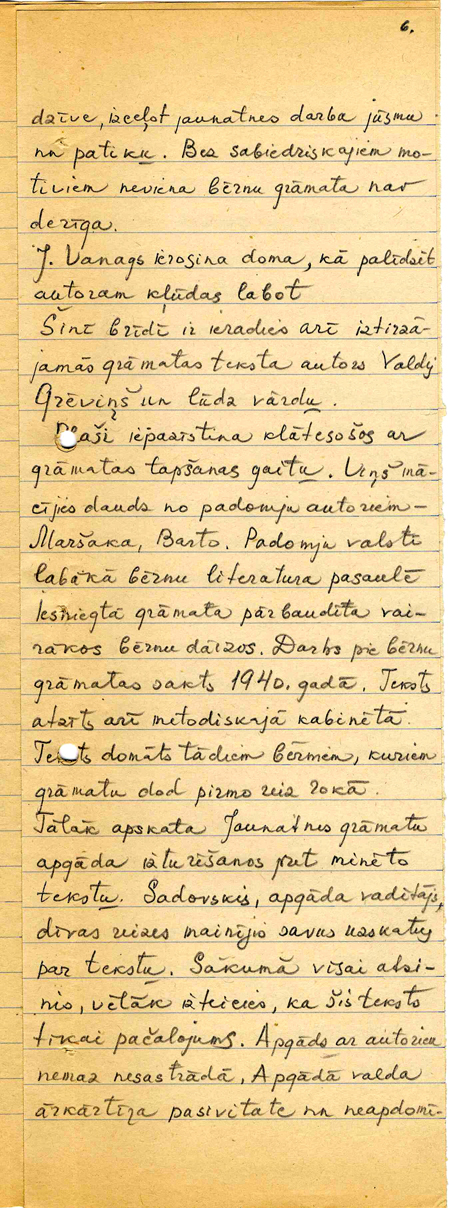 6.
dzīve, izceļot jaunatnes darba jūsmu
un patiku. Bez sabiedriskajiem mo-
tiviem neviena bērnu grāmata nav
derīga.
J. Vanags ierosina doma, kā palīdzēt
autoram kļūdas labot
Šinī brīdī ir ieradies arī iztirzā-
jamās grāmatas teksta autors Valdis
Grēviņš un lūdz vārdu.
Plaši iepazīstina klātesošos ar
grāmatas tapšanas gaitu. Viņš mā-
cījies daudz no padomju autoriem -
Maršaka, Barto. Padomju valstī
labākā bērnu literatura pasaulē
Iesniegtā grāmata pārbaudīta vai-
rākos bērnu dārzos. Darbs pie bērnu
grāmatas sākts 1940. gadā. Teksts
atzīts arī metodiskajā kabinētā.
Teksts domāts tādiem bērniem, kuriem
grāmatu dod pirmo reiz rokā.
Tālāk apskata Jaunatnes grāmatu
apgāda izturēšanos pret minēto
tekstu. Sadovskis, apgāda vadītājs,
divas reizes mainījis savus uzskatus
par tekstu. Sākumā visai atzi-
nis, vēlāk izteicies, ka šis teksts
tikai pačalojums. Apgāds ar autoriem
nemaz nesastrādā, Apgādā valda
ārkārtīga pasivitate un neapdomī-